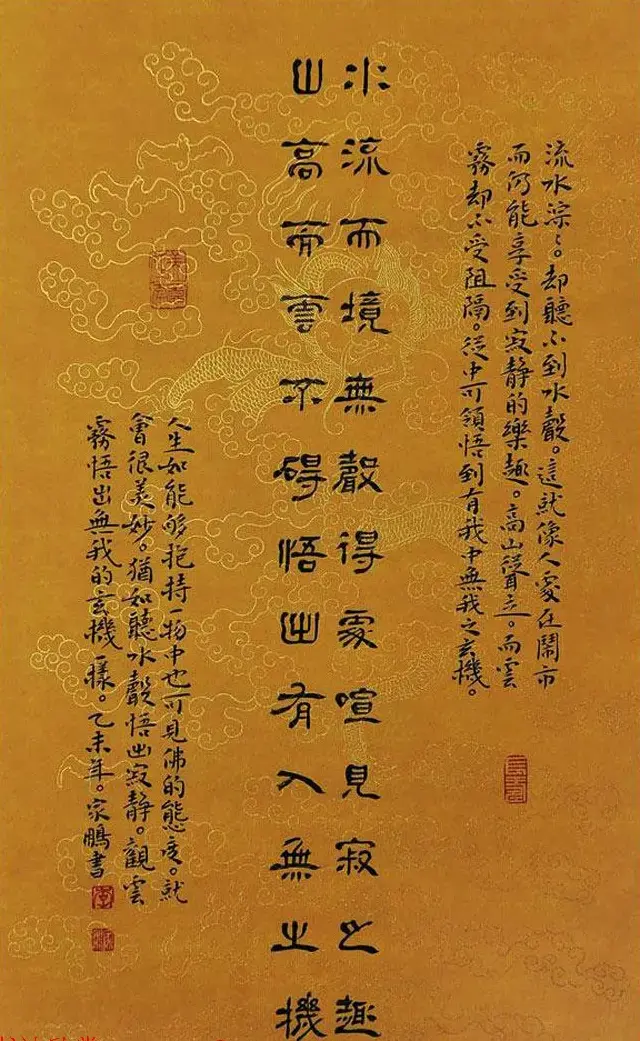 流水淙〻。却聽不到水聲。這就像人處在鬧市
而仍能享受到寂靜的樂趣。高山聳立。而雲
霧却不受阻隔。從中可領悟到有我中無我之玄機。
水流而境無聲得處喧見寂之趣
山高而雲不碍悟出有入無之機
人生如能够抱持一物中也可見佛的態度。就
會很美妙。猶如聽水聲悟出寂靜。觀雲
霧悟出無我的玄機一樣。乙未年。家鵬書